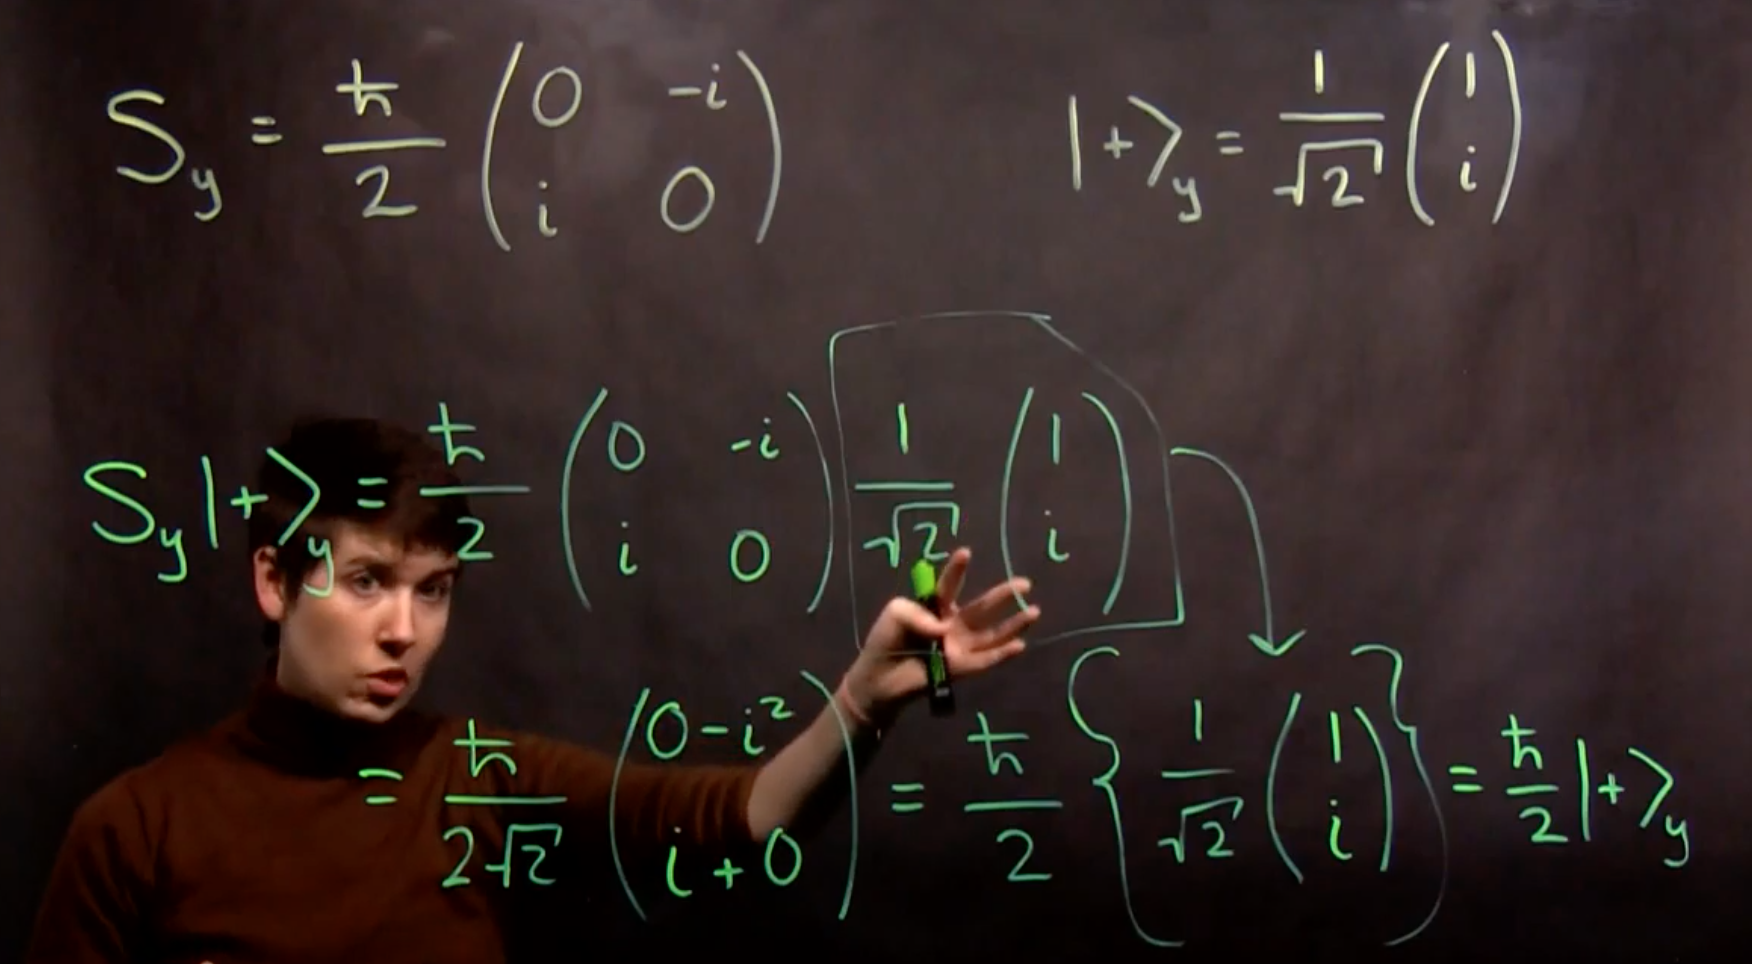 S_y = ħ/2 ( 0 -i ; i 0 )
|+⟩_y = 1/√2 ( 1 ; i )
S_y |+⟩_y = ħ/2 ( 0 -i ; i 0 ) 1/√2 ( 1 ; i )
= ħ/(2√2) ( 0 - i² ; i + 0 ) = ħ/2 { 1/√2 ( 1 ; i ) } = ħ/2 |+⟩_y